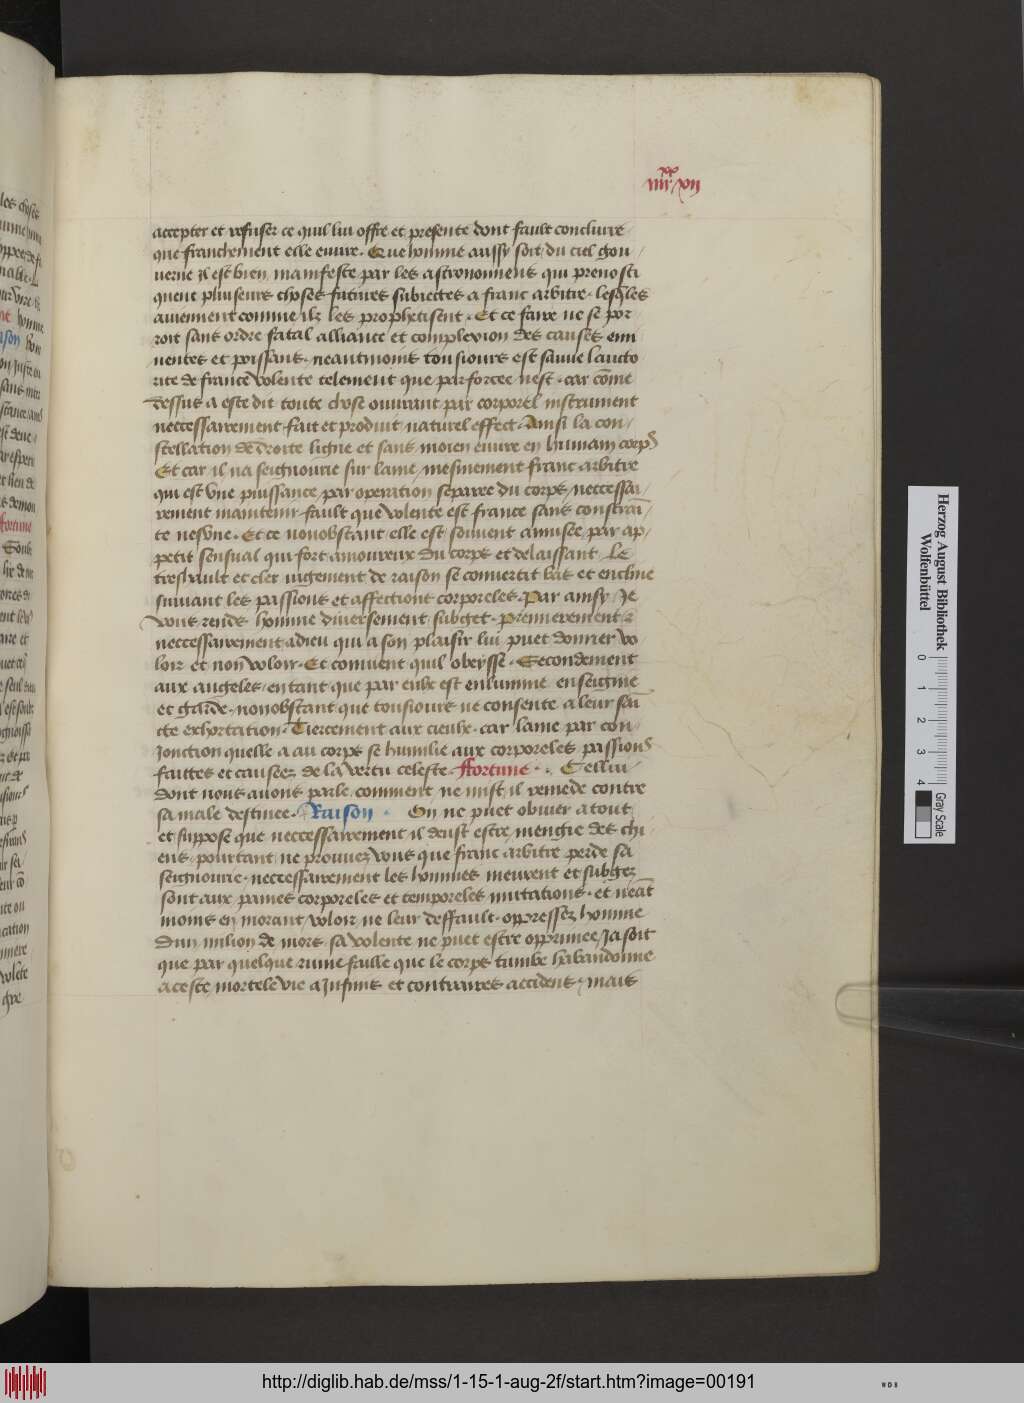 iiii xx xvii
accepter et refuser ce quil lui offre et presente dont fault conclure
que franchement elle euure. Que homme aussy soit du ciel gou
uerne Il est bien manifeste par les astronomiens qui pronosti
quent pluiseurs choses futures subiectes a franc arbitre. lesqles
auiennent comme ilz les prophetisent. Et ce faire ne se por
roit sans ordre fatal alliance et complexion des causes emi
nentes et poissans. neantmoins tousiours est sauue laucto
rite de france volente telement que par forcee nest. car come
dessus a este dit toute chose ouurant par corporel instrument
neccessairement fait et produit naturel effect. Ainsi la con
stellation de droite ligne et sans moien euure en humain corps
Et car il na seignourie sur lame mesmement franc arbitre
qui est vne puissance par operation separee du corps neccessai
rement maintenir fault que volente est france sans constrai
te nesune. Et ce nonobstant elle est souuent amusee par ap
petit sensual qui fort amoureux du corps et delaissant le
treshault et cler iugement de raison se conuertit bas et encline
suiuant les passions et affections corporeles. Par ainsy Je
vous rends homme diuersement subget. premierement et
neccessairement a dieu qui a son plaisir lui puet donner vo
loir et non voloir. Et conuient quil obeysse. Secondement
aux angeles en tant que par eulx est enlumine enseignie
et garde. nonobstant que tousiours ne consente a leur sai
cte exhortation. Tiercement aux cieulx. car lame par con
Jonction quelle a au corps se humilie aux corporeles passions
faittes et causeez de la vertu celeste. ffortune. Cellui
dont nous auons parle comment ne mist il remede contre
sa male destinee. Raison On ne puet obuier a tout
et suppose que neccessairement il deust estre mengie des chi
ens pourtant ne prouuez vous que franc arbitre perde sa
seignourie. neccessairement les hommes meurent et subgez
sont aux paines corporeles et temporeles mutations. et neat
moins en morant voloir ne leur deffault. oppressez homme
dun milion de mors sa volente ne puet estre opprimee Ja soit
que par quelque ruine faille que le corps tumbe habandonne
a ceste mortele vie a Infinis et contraires accidens. mais
Herzog August Bibliothek
Wolfenbüttel
0 1 2 3 4
Gray Scale
http://diglib.hab.de/mss/1-15-1-aug-2f/start.htm?image=00191
WDB